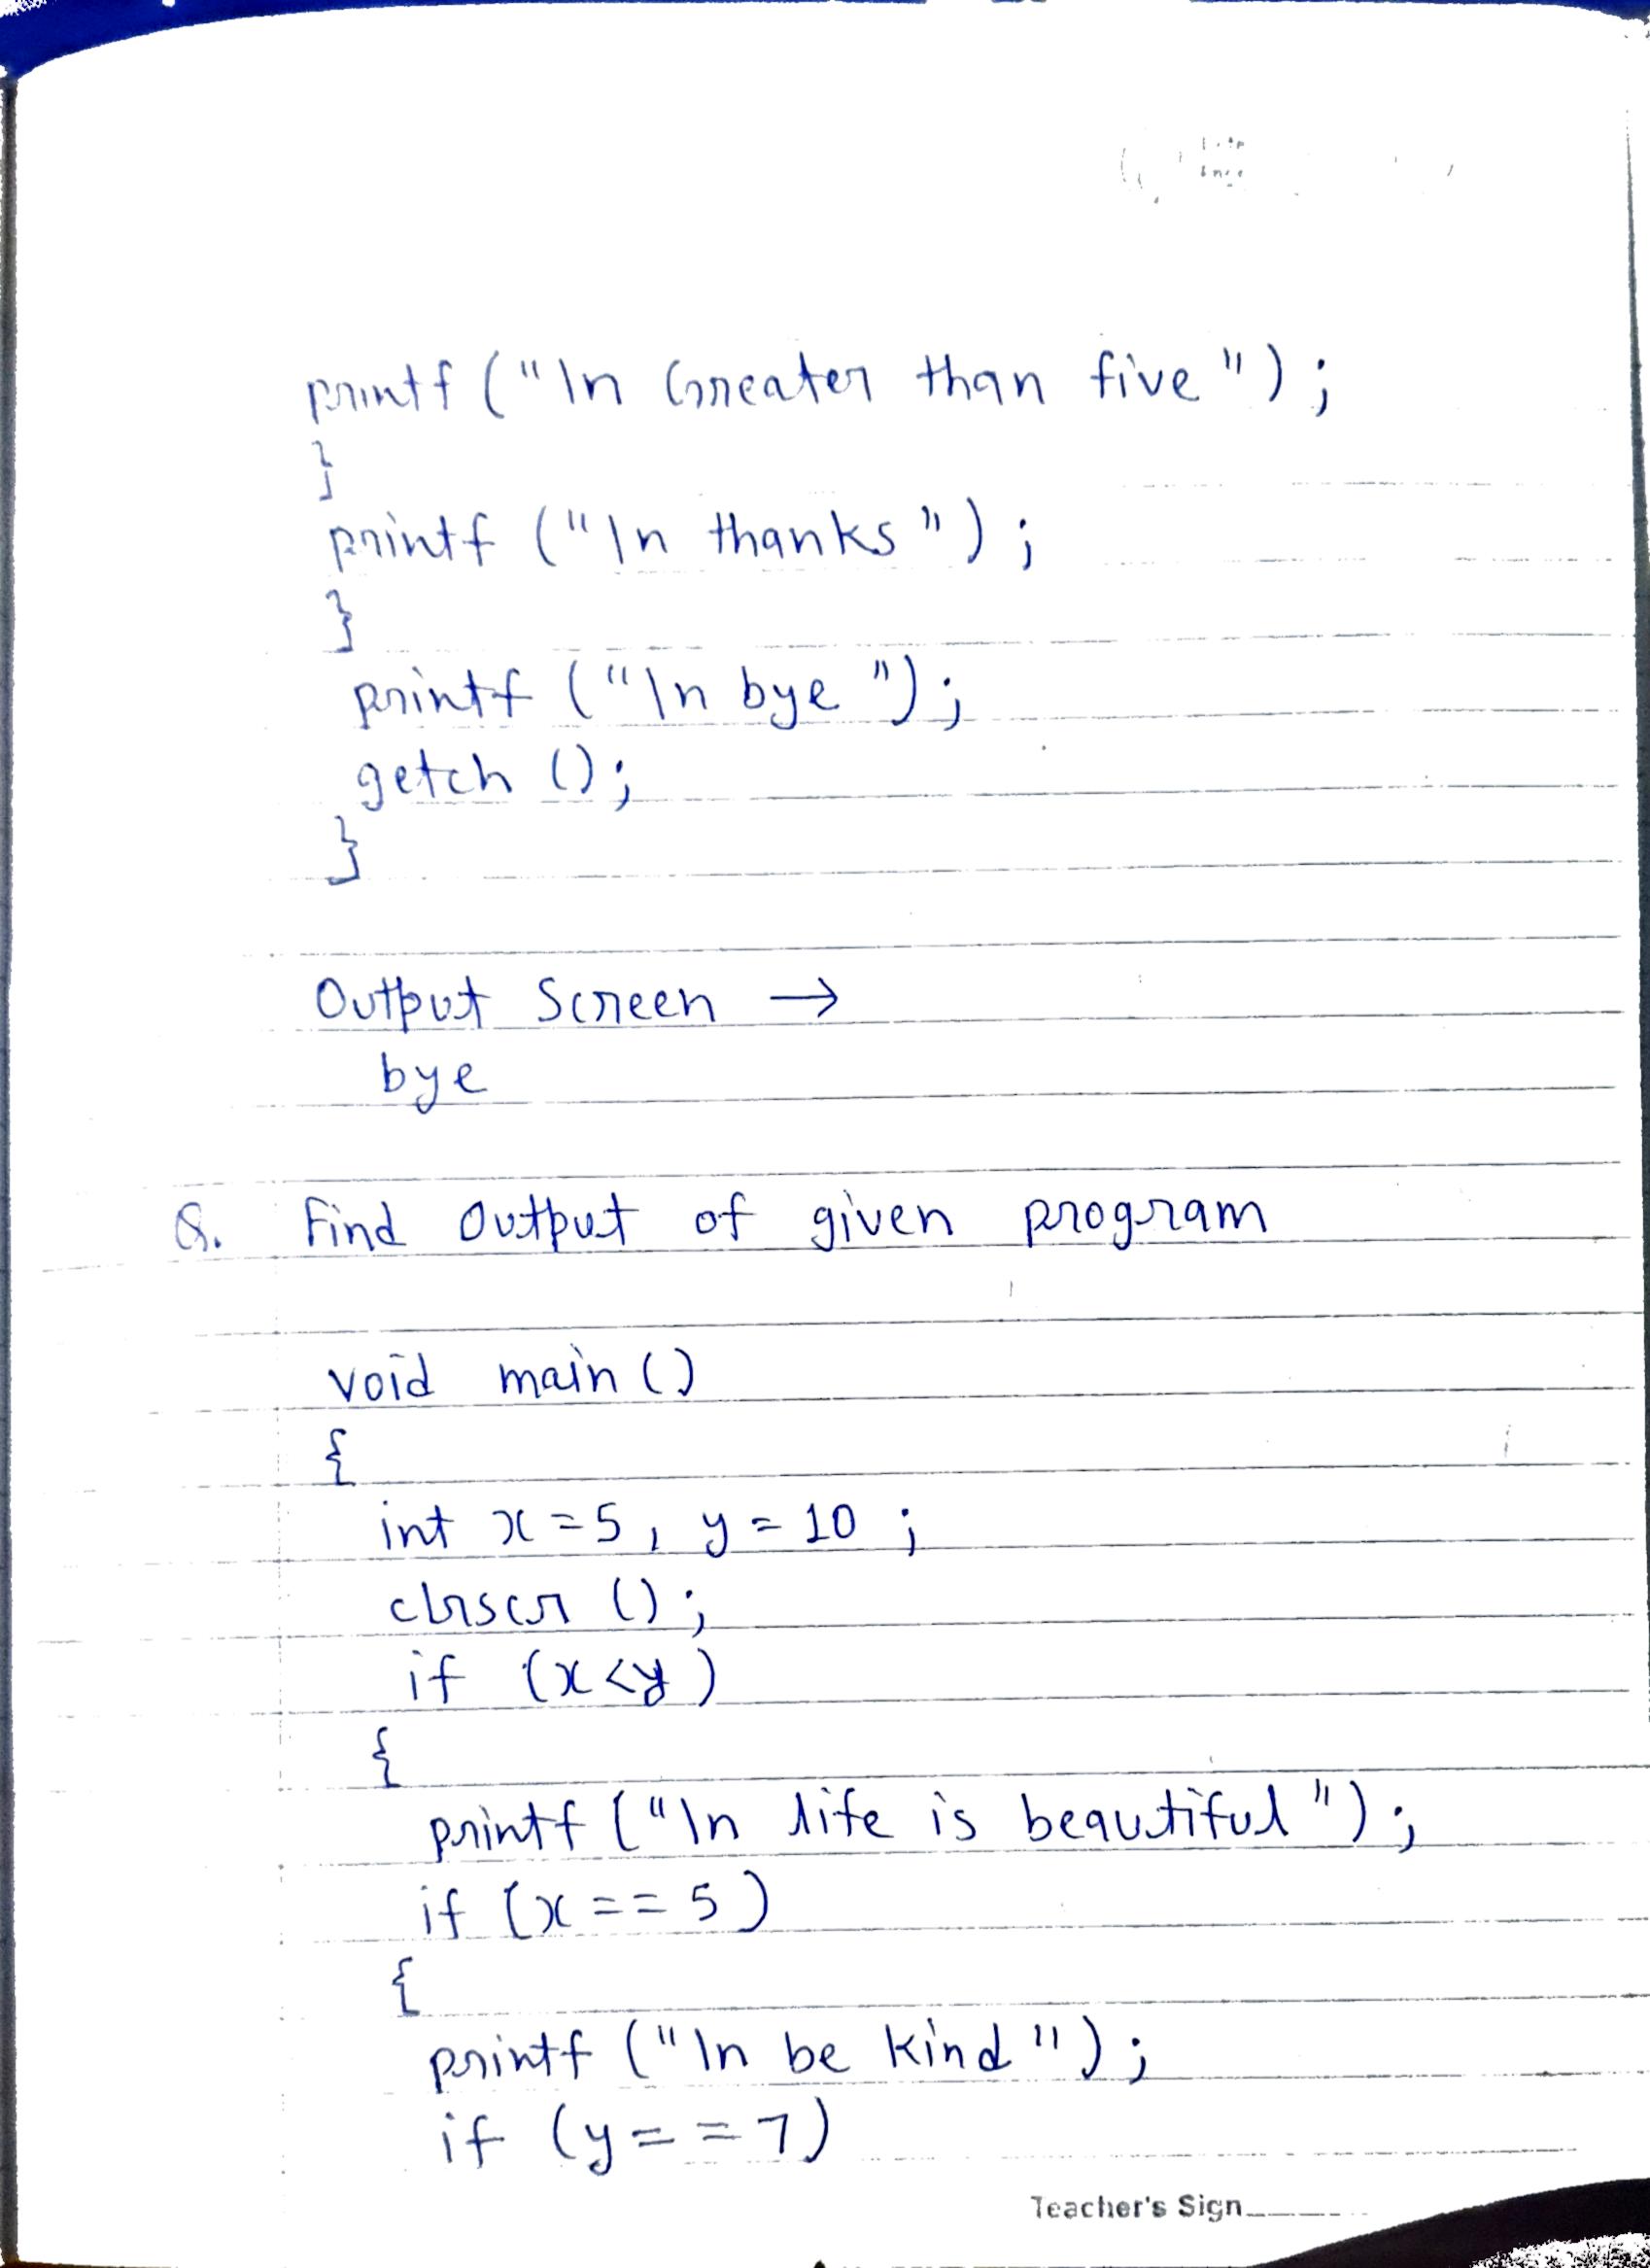 printf ("\n Greater than five");
}
printf ("\n thanks");
}
printf ("\n bye");
getch ();
}
Output Screen →
bye
Q. Find Output of given program
void main ()
{
int x = 5, y = 10 ;
clrscr ();
if (x < y)
{
printf ("\n life is beautiful");
if (x == 5)
{
printf ("\n be kind");
if (y == 7)
Teacher's Sign